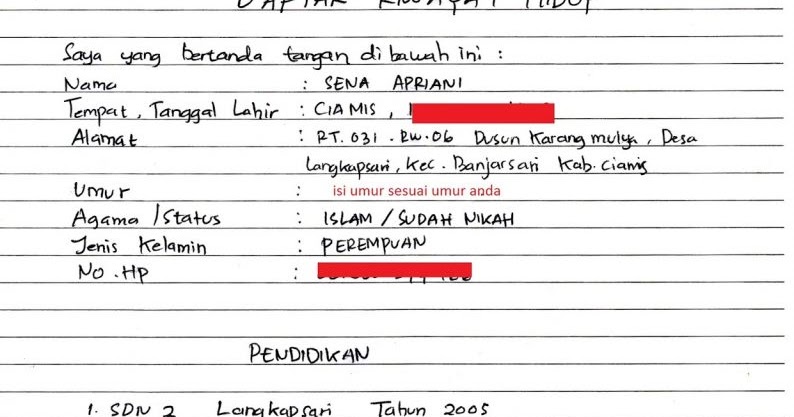 DAFTAR RIWAYAT HIDUP
Saya yang bertanda tangan di bawah ini :
Nama : SENA APRIANI
Tempat, Tanggal Lahir : CIAMIS ,
Alamat : RT. 031 . RW. 06 Dusun Karang mulya, Desa
Langkapsari, Kec. Banjarsari Kab. Ciamis
Umur : isi umur sesuai umur anda
Agama / Status : ISLAM / SUDAH NIKAH
Jenis Kelamin : PEREMPUAN
No . HP :
PENDIDIKAN
1. SDN 2 Langkapsari Tahun 2005